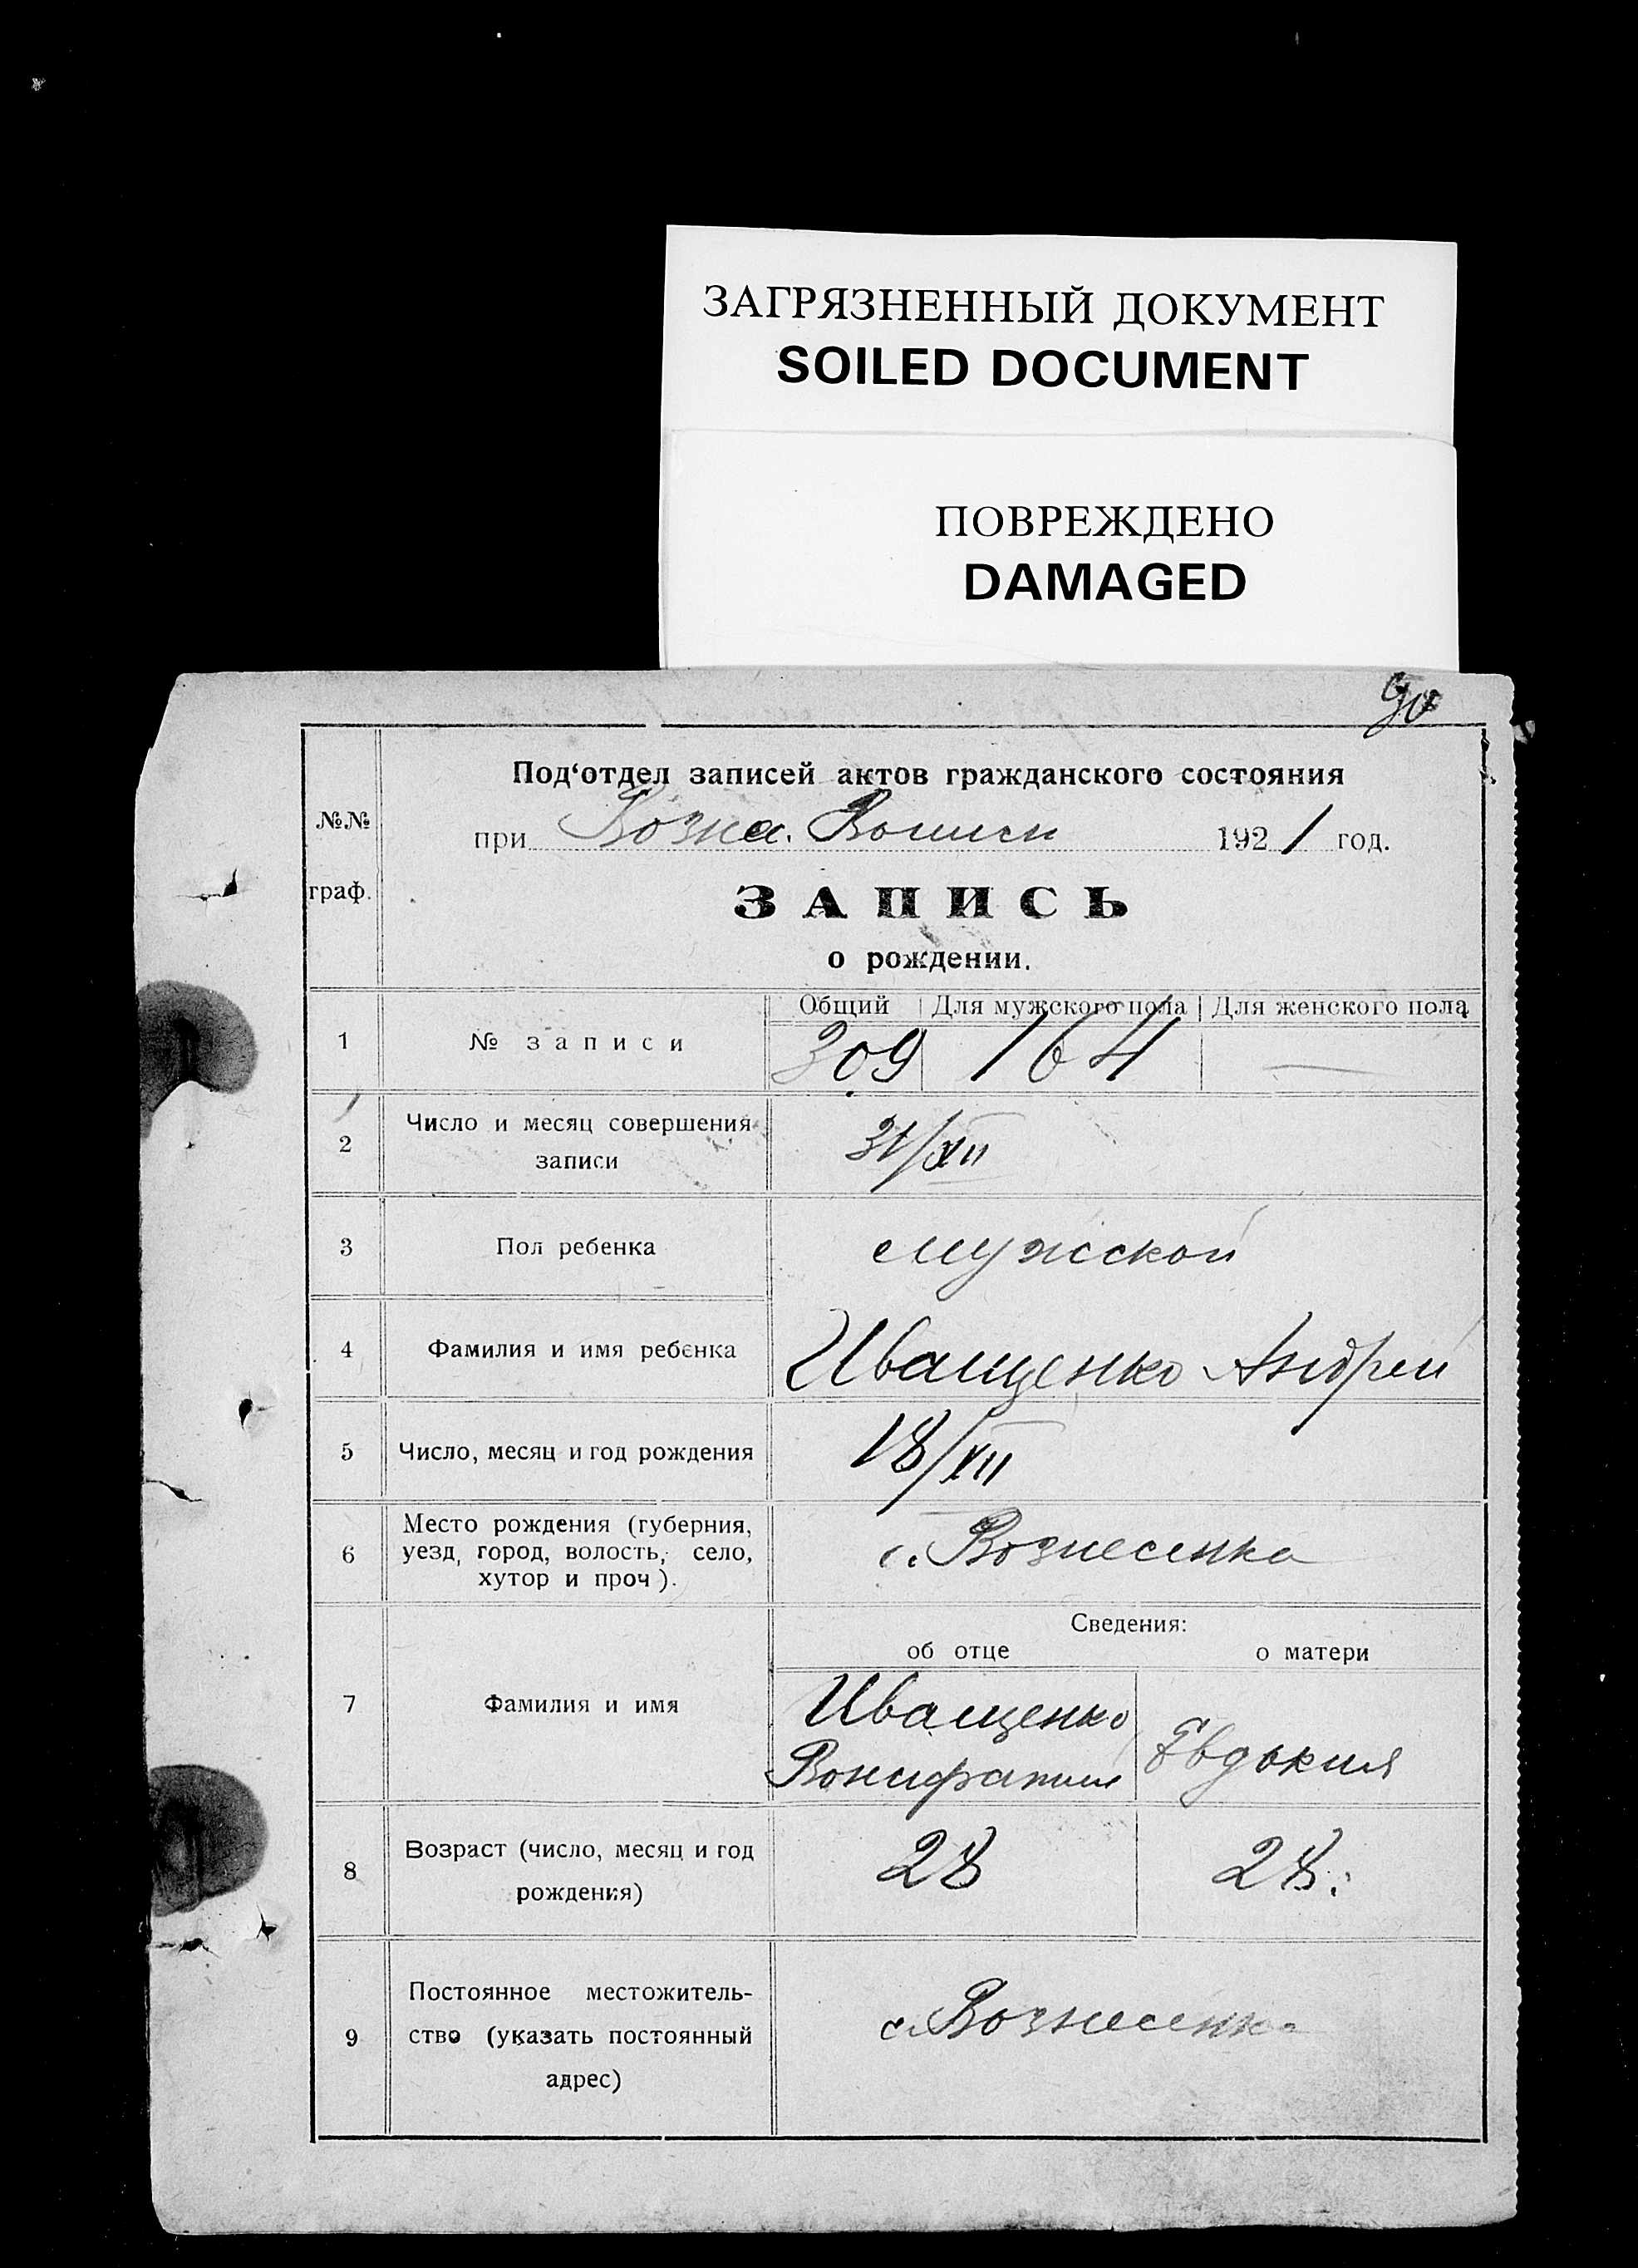 ЗАГРЯЗНЕННЫЙ ДОКУМЕНТ
SOILED DOCUMENT
ПОВРЕЖДЕНО
DAMAGED
№№ граф.
Под‘отдел записей актов гражданского состояния
при Возне. 1921 год.
ЗАПИСЬ
о рождении.
Общий Для мужского пола Для женского пола
1 № записи 309 164 —
2 Число и месяц совершения
записи 31/XII
3 Пол ребенка мужской
4 Фамилия и имя ребенка Иващенко Андрей
5 Число, месяц и год рождения 18/XII
6 Место рождения (губерния,
уезд, город, волость, село,
хутор и проч). с. Вознесенка
Сведения:
об отце о матери
7 Фамилия и имя Иващенко
Вонифатий Евдокия
8 Возраст (число, месяц и год
рождения) 28 28.
9 Постоянное местожитель-
ство (указать постоянный
адрес) с. Вознесенка